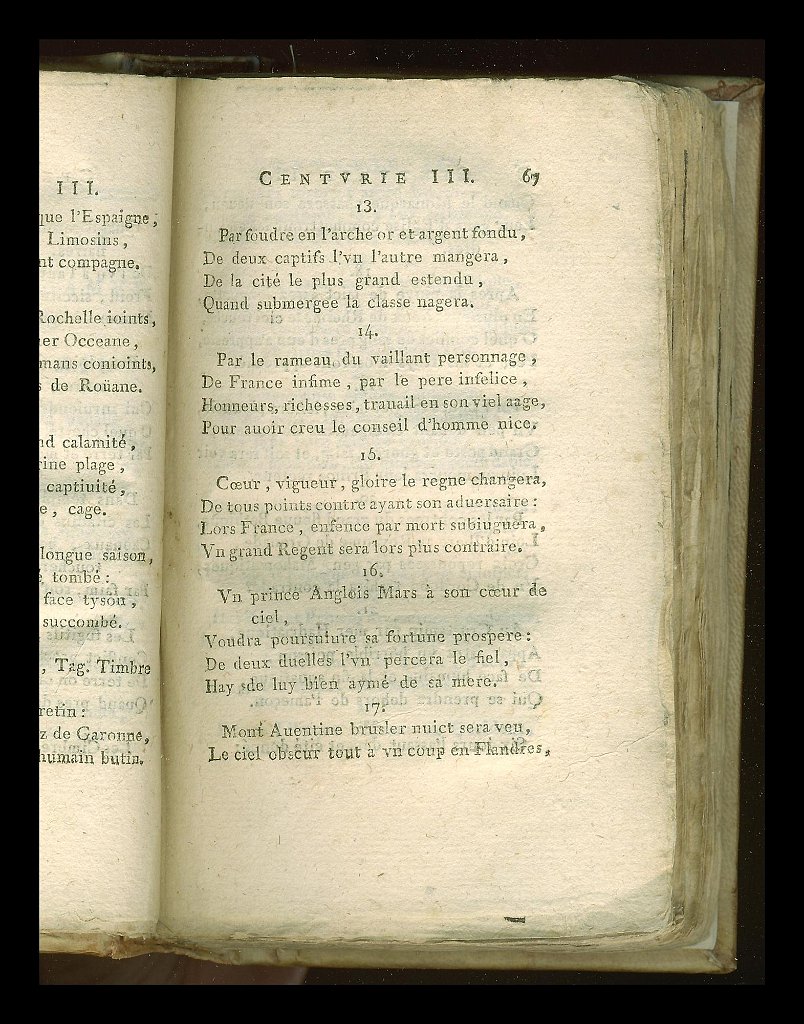 III.
que l'Espaigne;
Limosins,
nt compagne.
Rochelle ioints,
er Occeane,
mans conioints,
s de Roüane.
nd calamité,
rine plage,
captiuité,
e, cage.
longue saison,
tombé:
face tyson,
succombé.
, Tag. Timbre
retin:
z de Garonne,
humain butin.
CENTVRIE III. 67
13.
Par foudre en l'arche or et argent fondu,
De deux captifs l'vn l'autre mangera,
De la cité le plus grand estendu,
Quand submergee la classe nagera.
14.
Par le rameau du vaillant personnage,
De France infime, par le pere infelice,
Honneurs, richesses, trauail en son viel aage,
Pour auoir creu le conseil d'homme nice.
15.
Cœur, vigueur, gloire le regne changera,
De tous points contre ayant son aduersaire:
Lors France, enfence par mort subiuguera,
Vn grand Regent sera lors plus contraire.
16.
Vn prince Anglois Mars à son cœur de
ciel,
Voudra poursuiure sa fortune prospere:
De deux duelles l'vn percera le fiel,
Hay de luy bien aymé de sa mere.
17.
Mont Auentine brusler nuict sera veu,
Le ciel obscur tout à vn coup en Flandres,